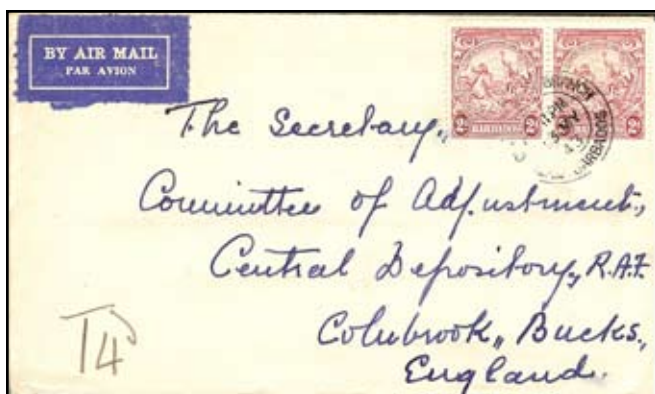 BY AIR MAIL
PAR AVION
2d 2d
BARBADOS
2d
BARBADOS
The Secretary,
Committee of Adjustment,
Central Depository, R.A.F.
Colnbrook, Bucks.,
England.
T4